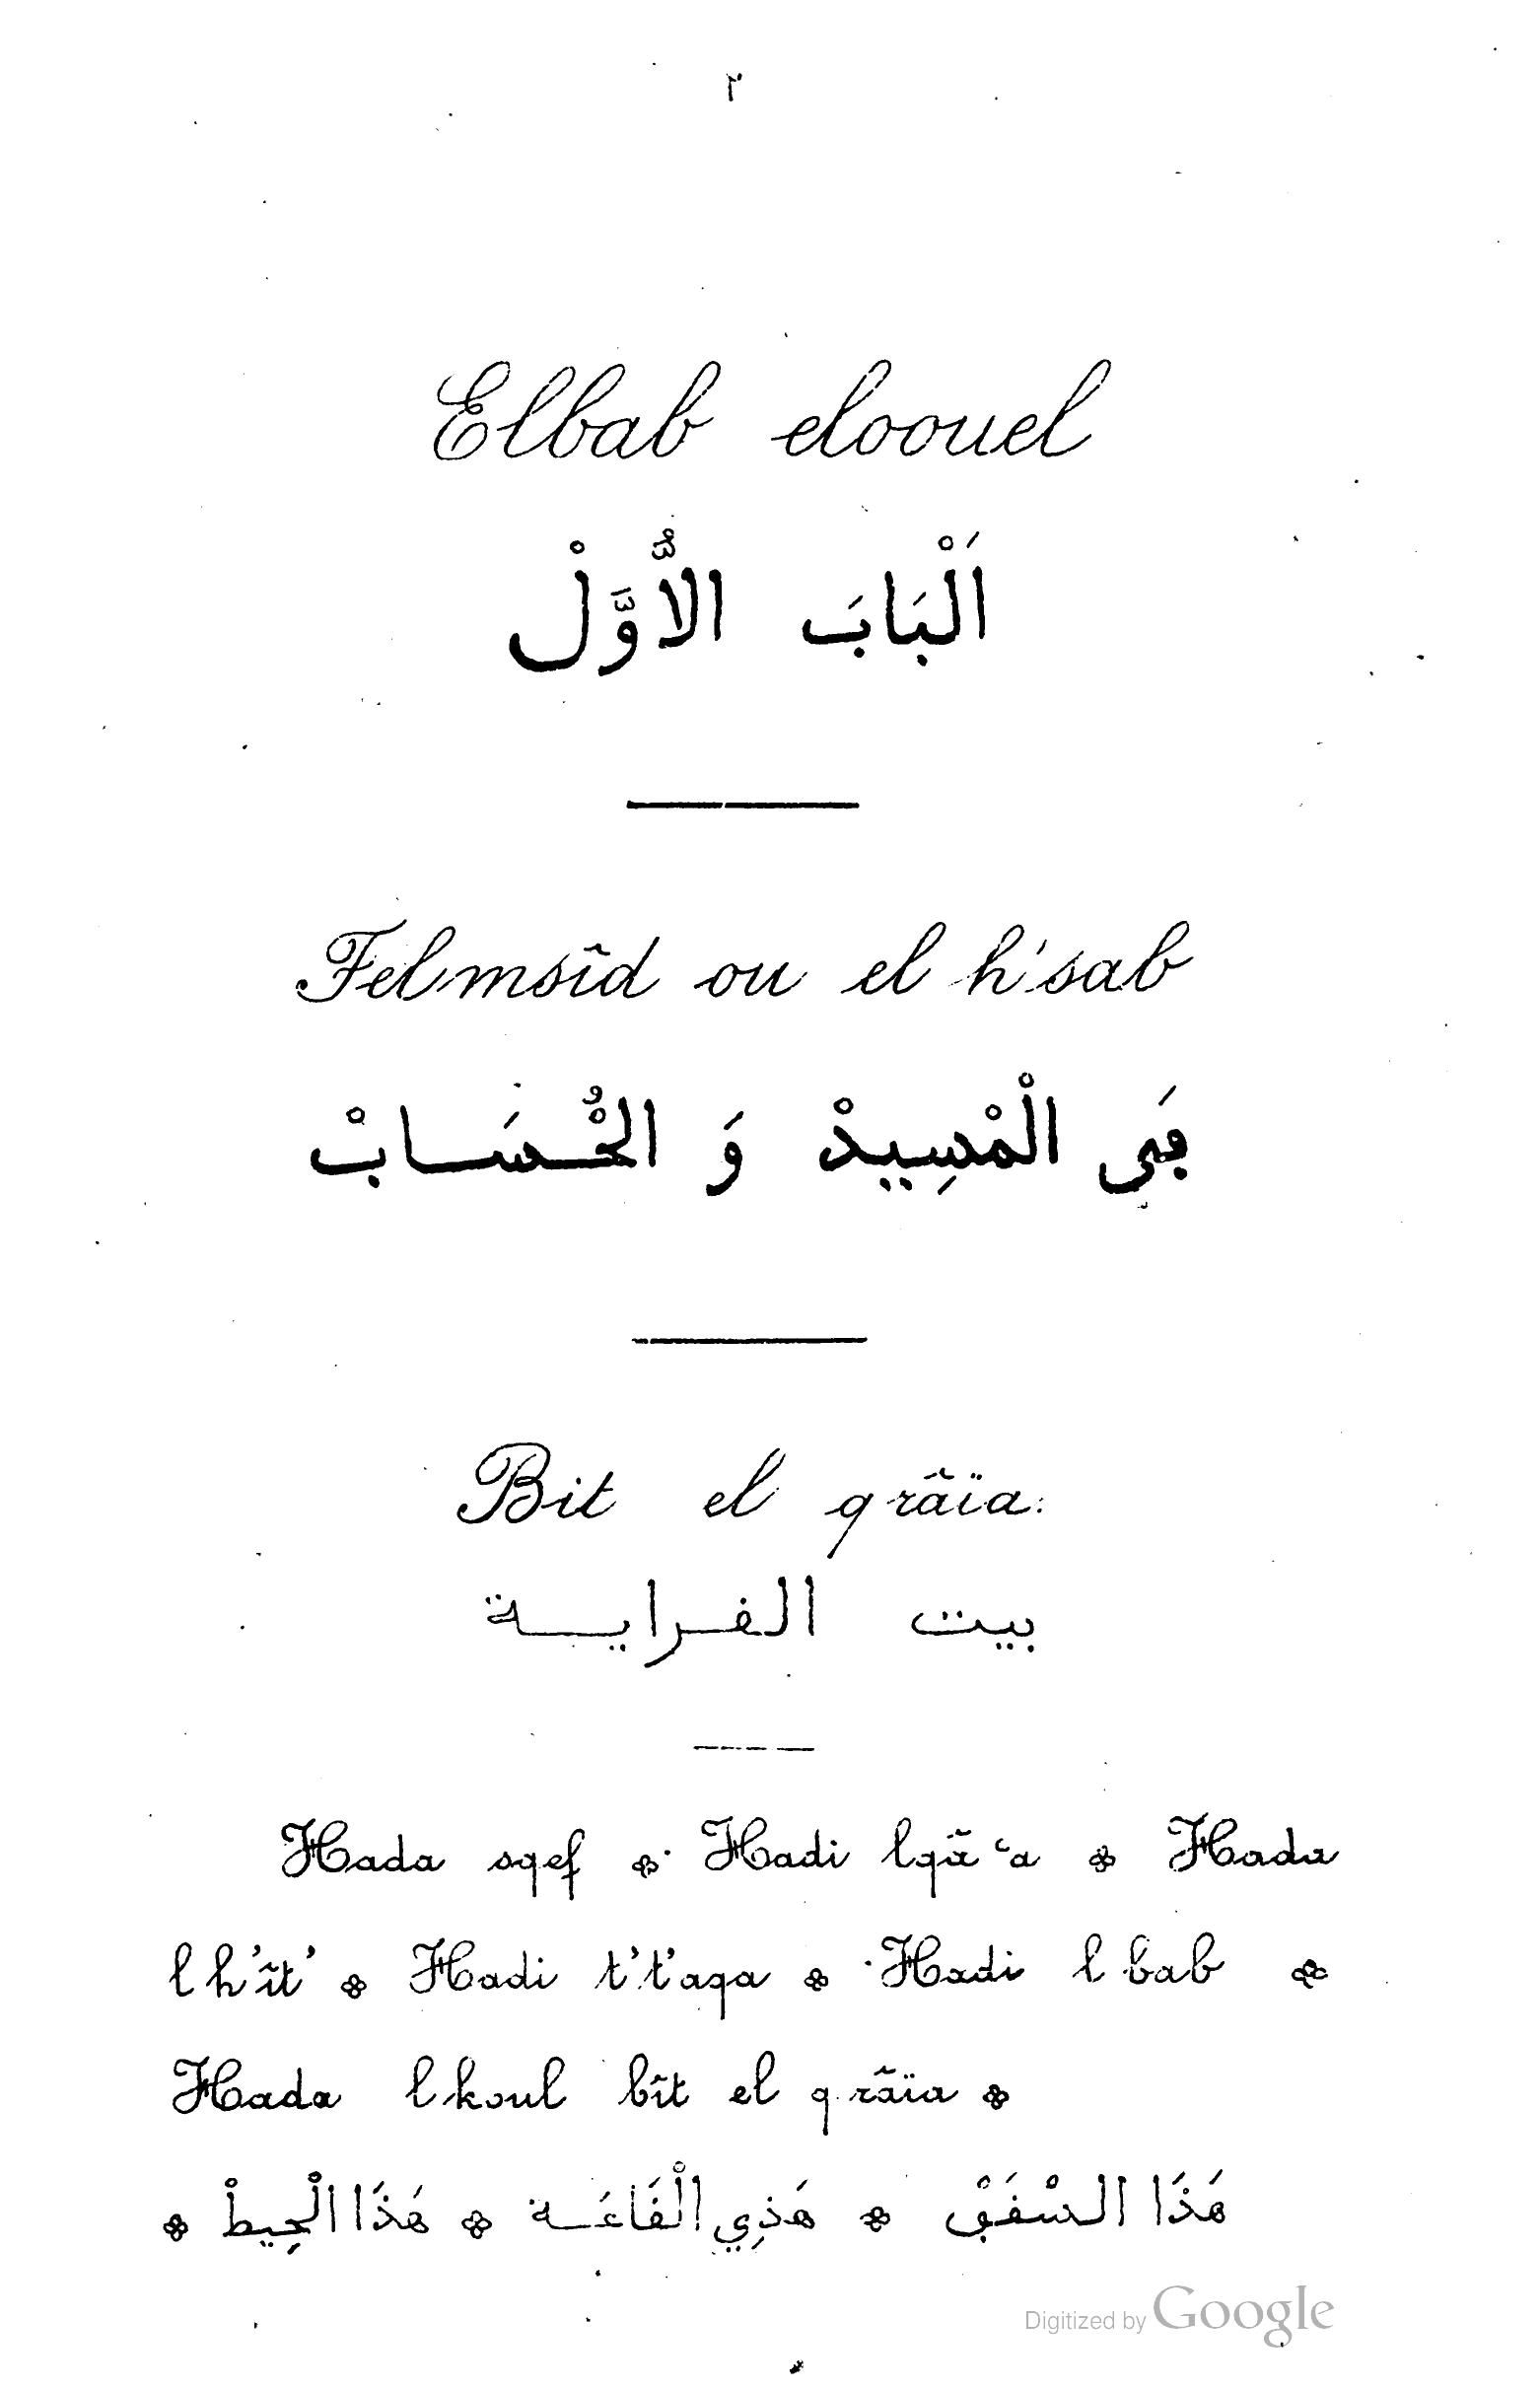 ٢
Elbab eloouel
اَلْبَابَ الاُّوَّلْ
Felmsîd ou el h'sab
ڢَى الْمْسِيدْ وَ الحُْسَابْ
Bit el qrâïa
بيت الفراية
Hada sqef ❖ Hadi lqâ ʿa ❖ Hada
l h'ît' ❖ Hadi t't'aqa ❖ Hadi l bab ❖
Hada lkoul bît el qrâïa ❖
هَذَا السْفَڢْ ❖ هَذِي الْفَاعَة ❖ هَذَا الْحِيطْ ❖
Digitized by Google